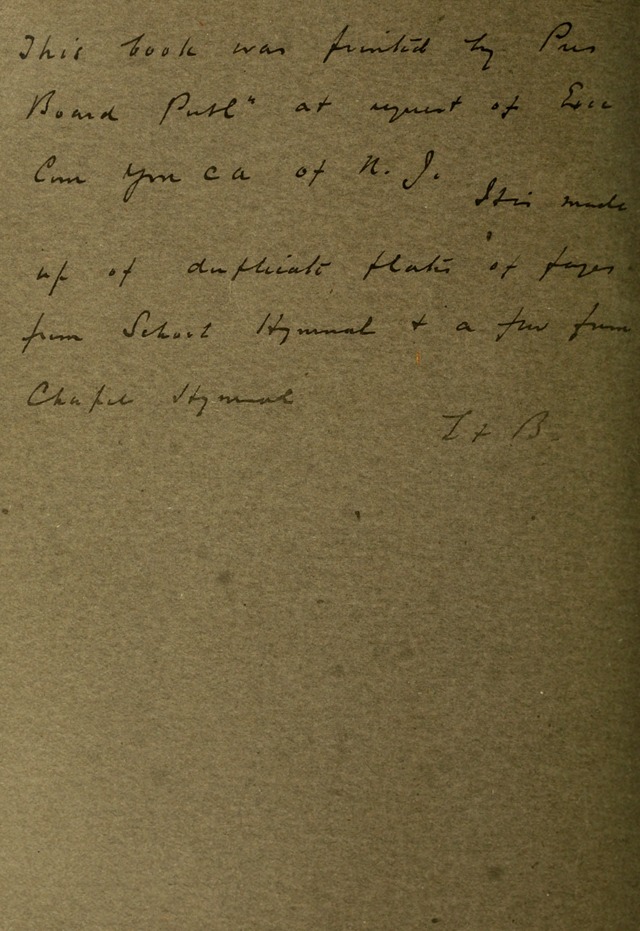 This book was printed by Pres
Board Publ" at request of Exec
Com Ym c a of N. J.
It is made
up of duplicate plates of pages
from School Hymnal & a few from
Chapel Hymnal
B.